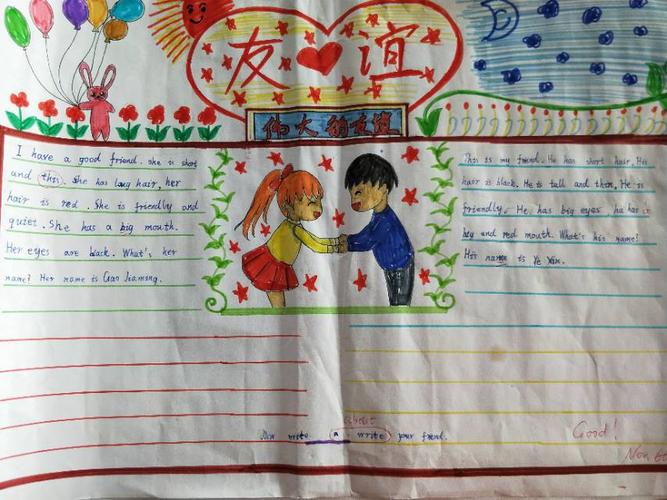 友谊
伟大的友谊
I have a good friend. she is short
and this. She has long hair, her
hair is red. She is friendly and
quiet. She has a big mouth.
Her eyes are black. What's her
name? Her name is Gao Jiaming.
This is my friend. He has short hair. His
hair is black. He is tall and then, He is
friendly. He has big eyes he has is
big and red mouth. What's his name?
His name is Ye Xin.
about
write a write your friend.
Good!